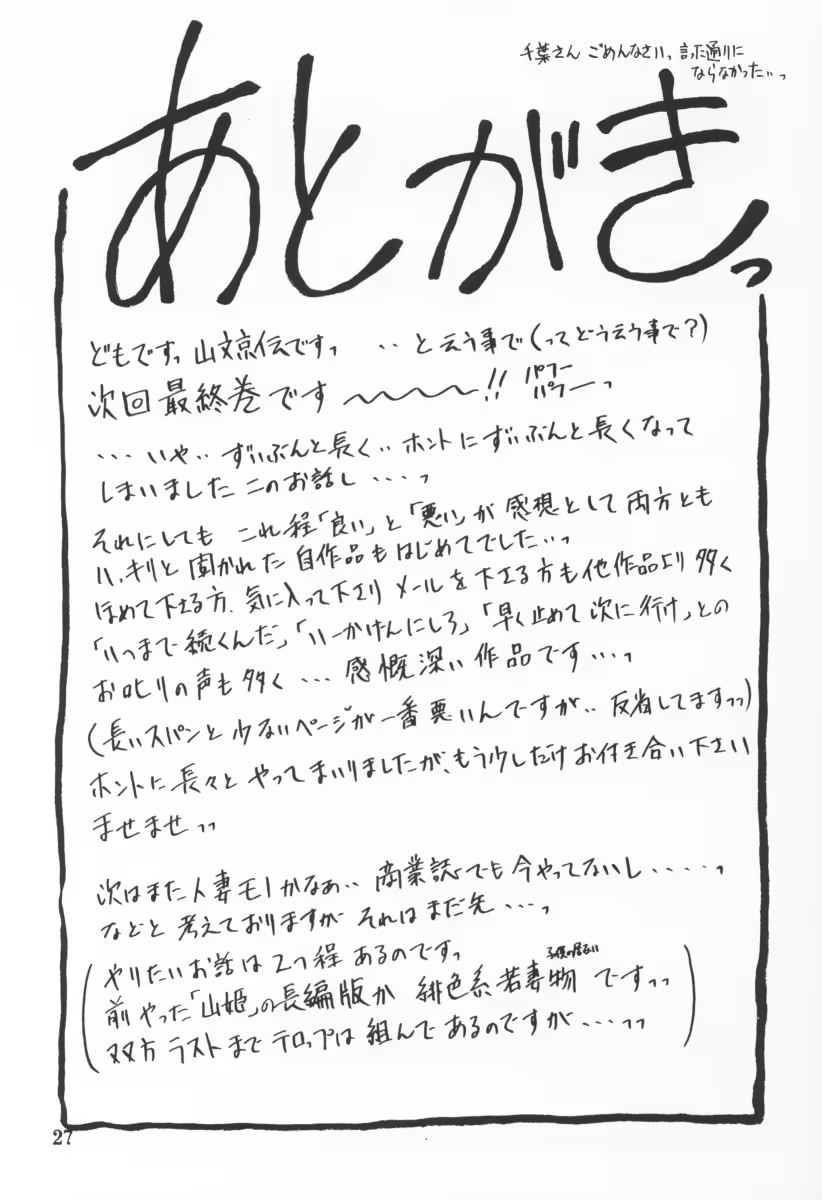 千葉さん ごめんなさいっ 言った通りに
ならなかった‥っ
あとがきっ
どもですっ 山文京伝ですっ ‥と云う事で(ってどう云う事で?)
次回最終巻です〜〜〜〜!! パフー
パフーっ
‥‥いや‥ずいぶんと長く‥ホントにずいぶんと長くなって
しまいましたこのお話し‥‥っ
それにしても これ程「良い」と「悪い」が感想として両方とも
ハッキリと聞かれた自作品もはじめてでした‥っ
ほめて下さる方、気に入って下さり メールを下さる方も他作品より多く
「いつまで続くんだ」「いーかげんにしろ」「早く止めて次に行け」との
お叱りの声も多く‥‥感慨深い作品です‥‥っ
(長いスパンと少ないページが一番悪いんですが‥反省してますっっ)
ホントに長々と やってまいりましたが、もう少しだけお付き合い下さい
ませませっっ
次はまた人妻モノかなぁ‥商業誌でも今やってないし‥‥‥っ
などと考えておりますが それはまだ先‥‥っ
やりたいお話は2つ程あるのですっ
前やった「山姫」の長編版か 緋色系若妻物 ですっっ
子供の居ない
双方ラストまでテロップは組んであるのですが‥‥っっ
27